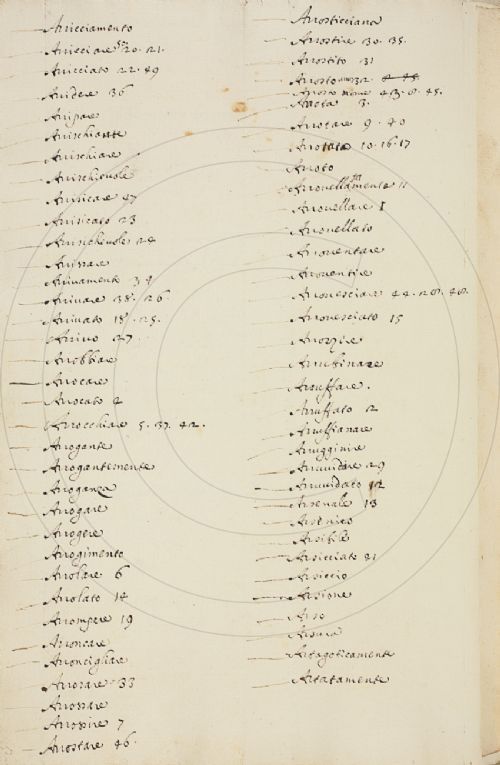 Arricciamento
Arricciare 20. 21.
Arricciato 22. 49
Arridere 36
Arripare
Arrischiante
Arrischiare
Arrischievole
Arrisicare 47
Arrisicato 23
Arrischevole 24
Arrissare
Arrivamento 34
Arrivare 38. 26.
Arrivato 18. 25.
Arrivo 27
Arrobbiare
Arrocare
Arrocato 2
Arrocchiare 5. 37. 42.
Arrogante
Arrogantemente
Arroganza
Arrogare
Arrogere
Arrogimento
Arrolare 6
Arrolato 14
Arrompere 19
Arroncare
Arroncigliare
Arrosare 33
Arrossare
Arrossire 7
Arrostare 46.
Arrosticciana
Arrostire 30. 35.
Arrostito 31
Arrosto 32
Arrosto nome 43. 8. 45.
Arrota 3.
Arrotare 9. 40
Arrotato 10. 16. 17
Arroto
Arrovellatamente 11
Arrovellare 1
Arrovellato
Arroventare
Arroventire
Arrovesciare 44. 28. 48.
Arrovesciato 15
Arrozzire
Arrubinare
Arruffare.
Arruffato 2
Arruffianare
Arrugginire
Arruvidare 29
Arruvidato 12
Arsenale 13
Arsenico
Arsibile
Arsicciato 41
Arsiccio
Arsione
Arso
Arsura
Artagoticamente
Artatamente